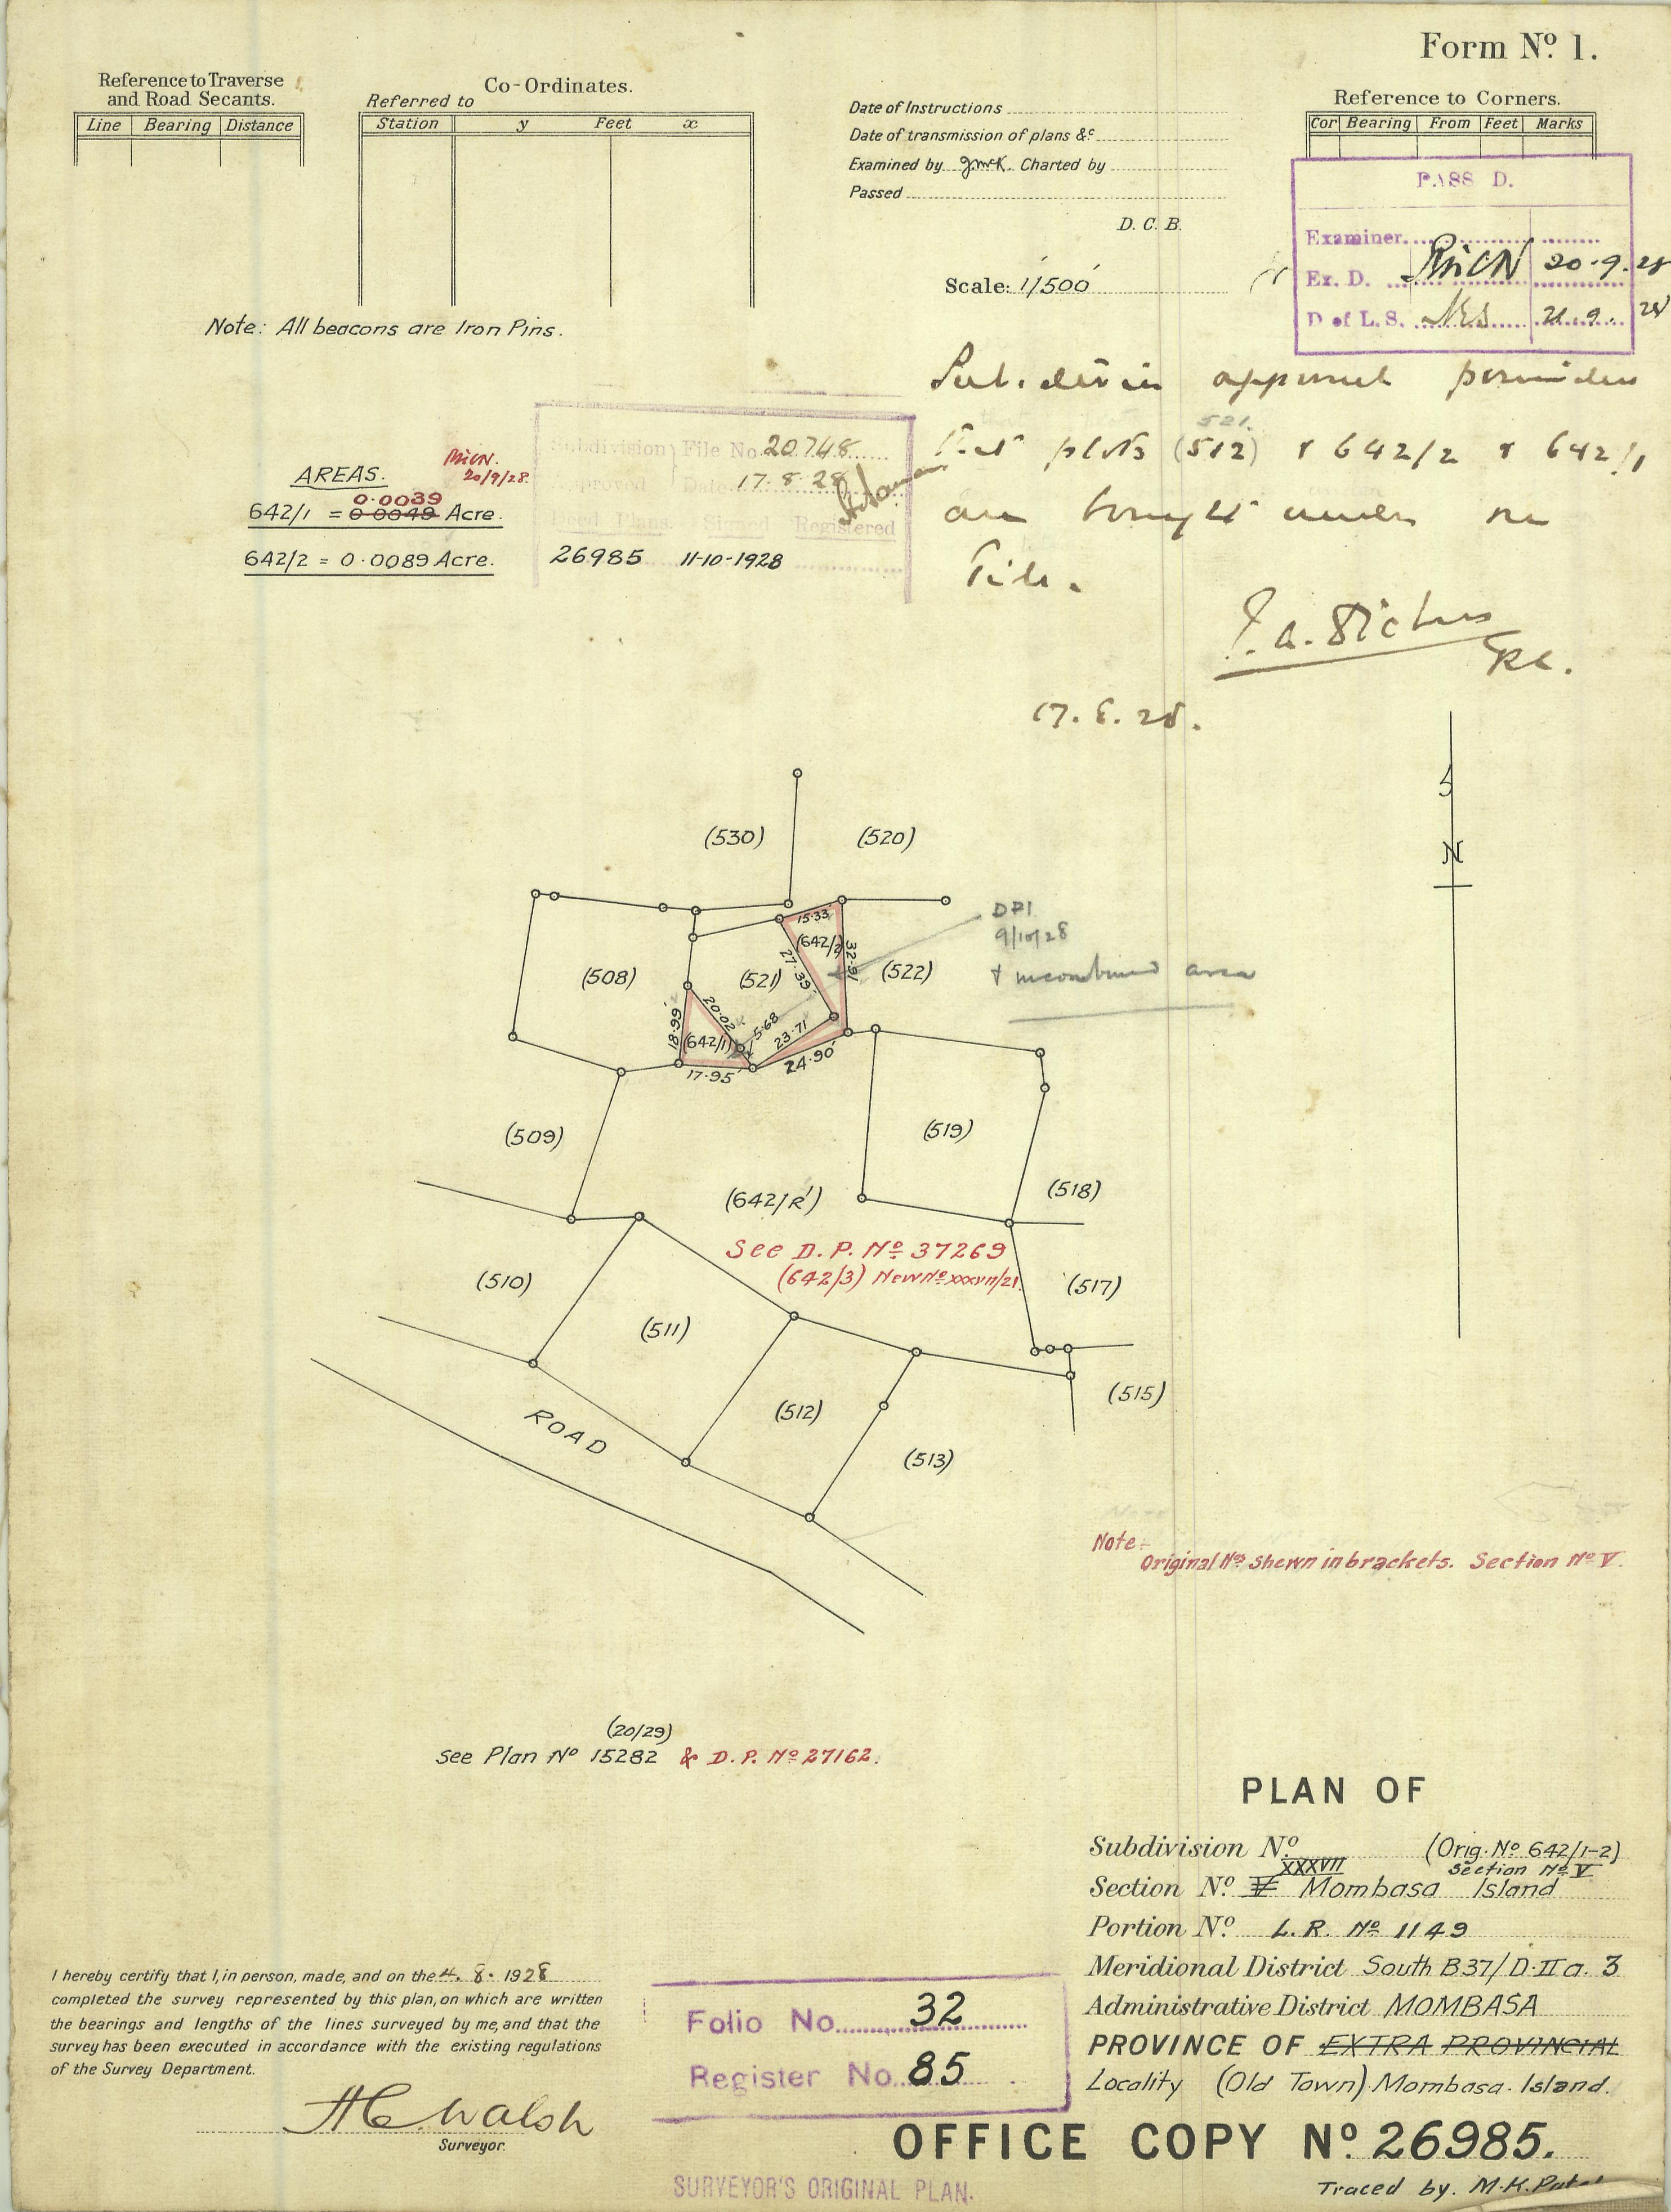 Form No 1.
Reference to Traverse
and Road Secants.
Line Bearing Distance
Co-Ordinates.
Referred to
Station y Feet x
Date of Instructions
Date of transmission of plans &c
Examined by J.McK. Charted by
Passed
D. C. B.
Scale: 1/500
Reference to Corners.
Cor Bearing From Feet Marks
PASS D.
Examiner
Ex. D. 20.9.28
D of L. S. 21.9. 28
Note: All beacons are Iron Pins.
Subdivision approved providing
521.
that plots (512) & 642/2 & 642/1
are bought under one
Title.
17.8.28.
Subdivision File No. 20748
Approved Date 17.8.28
Deed Plans Signed Registered
26985 11-10-1928
AREAS.
20/9/28.
0.0039
642/1 = 0.0049 Acre.
642/2 = 0.0089 Acre.
S
N
(530)
(520)
15.33
(642/2)
32.91
27.39
DPI
9/10/28
& incombined area
(508)
(521)
(522)
18.99
20.02
5.68
(642/1)
23.71
24.90
17.95
(509)
(519)
(518)
(642/R)
See D. P. No 37269
(642/3) New No XXXVII/21
(510)
(517)
(511)
(512)
(515)
(513)
ROAD
Note:-
Original Nos Shewn in brackets. Section No V.
(20/29)
see Plan No 15282 & D. P. No 27162.
PLAN OF
Subdivision No (Orig. No 642/1-2)
XXXVII Section No V
Section No V Mombasa Island
Portion No L. R. No 1149
Meridional District South B37/D.IIa. 3
Administrative District MOMBASA
PROVINCE OF EXTRA PROVINCIAL
Locality (Old Town) Mombasa Island.
I hereby certify that I, in person, made, and on the 4. 8. 1928
completed the survey represented by this plan, on which are written
the bearings and lengths of the lines surveyed by me, and that the
survey has been executed in accordance with the existing regulations
of the Survey Department.
H C Walsh
Surveyor.
Folio No. 32
Register No. 85
OFFICE COPY No 26985.
SURVEYOR'S ORIGINAL PLAN.
Traced by. M.K. Patel